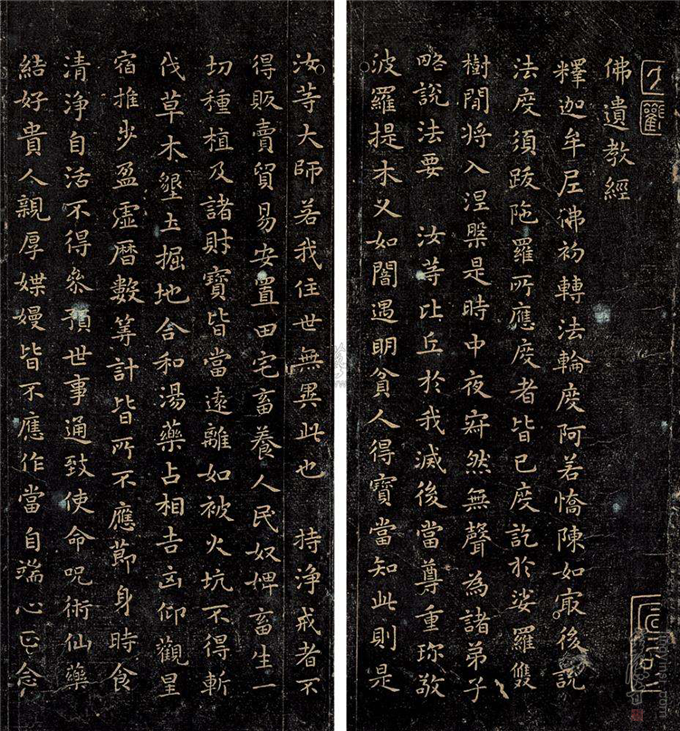 佛遺教經
釋迦牟尼佛初轉法輪度阿若憍陳如㝡後說
法度須跋陁羅所應度者皆已度訖於娑羅雙
樹間將入涅槃是時中夜寂然無聲為諸弟子
略說法要　汝等比丘於我滅後當尊重珎敬
波羅提木叉如闇遇明貧人得寶當知此則是
汝等大師若我住世無異此也　持淨戒者不
得販賣貿易安置田宅畜養人民奴婢畜生一
切種植及諸財寶皆當遠離如被火坑不得斬
伐草木墾土掘地合和湯藥占相吉凶仰觀星
宿推步盈虛曆數筭計皆所不應節身時食
清淨自活不得參預世事通致使命呪術仙藥
結好貴人親厚媟嫚皆不應作當自端心正念